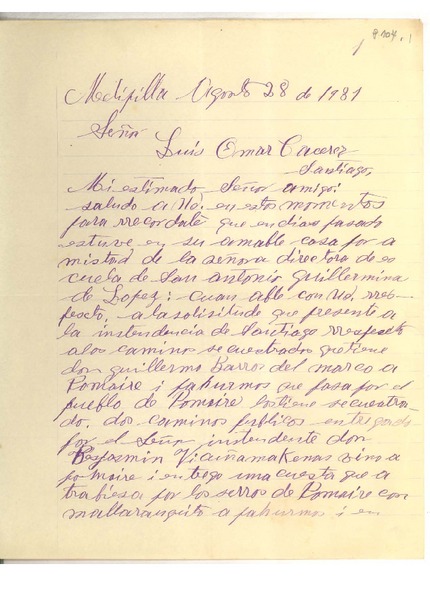 8704.1
Melipilla Agosto 28 de 1981
Señor
Luis Omar Cacerez
Santiago.
Mi estimado Señor amigo:
saludo a Ud. en estos momentos
para rrecordale que en dias pasado
estuve en su amable casa por a
mistad de la señora directora de es
cuela de San Antonio guillermina
de Lopez: cuan able con Ud, rres-
pescto, a la solisitude que presente a
la instendencia de Santiago rrespescto
a los camino secuentrados que tiene
don guillermo Barros del marco a
Pomaire i pahurmos que pasa por el
pueblo de Pomaire los tiene secuestra
do. dos caminos publicos entregado
por el Señor instendente don
Benjasmin Vicuñamakenas vino a
pomaire i entrego una cuesta que a
trabiesa por los serros de Pomaire con
mallarauquito a pahurmos i en